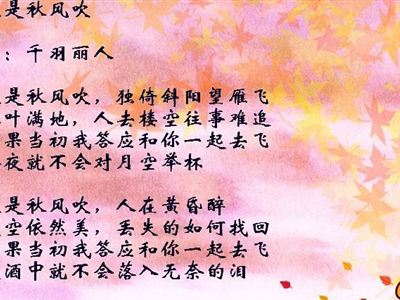 是秋风吹
：千羽丽人
是秋风吹，独倚斜阳望雁飞
叶满地，人去楼空往事难追
果当初我答应和你一起去飞
夜就不会对月空举杯
是秋风吹，人在黄昏醉
空依然美，丢失的如何找回
果当初我答应和你一起去飞
酒中就不会落入无奈的泪